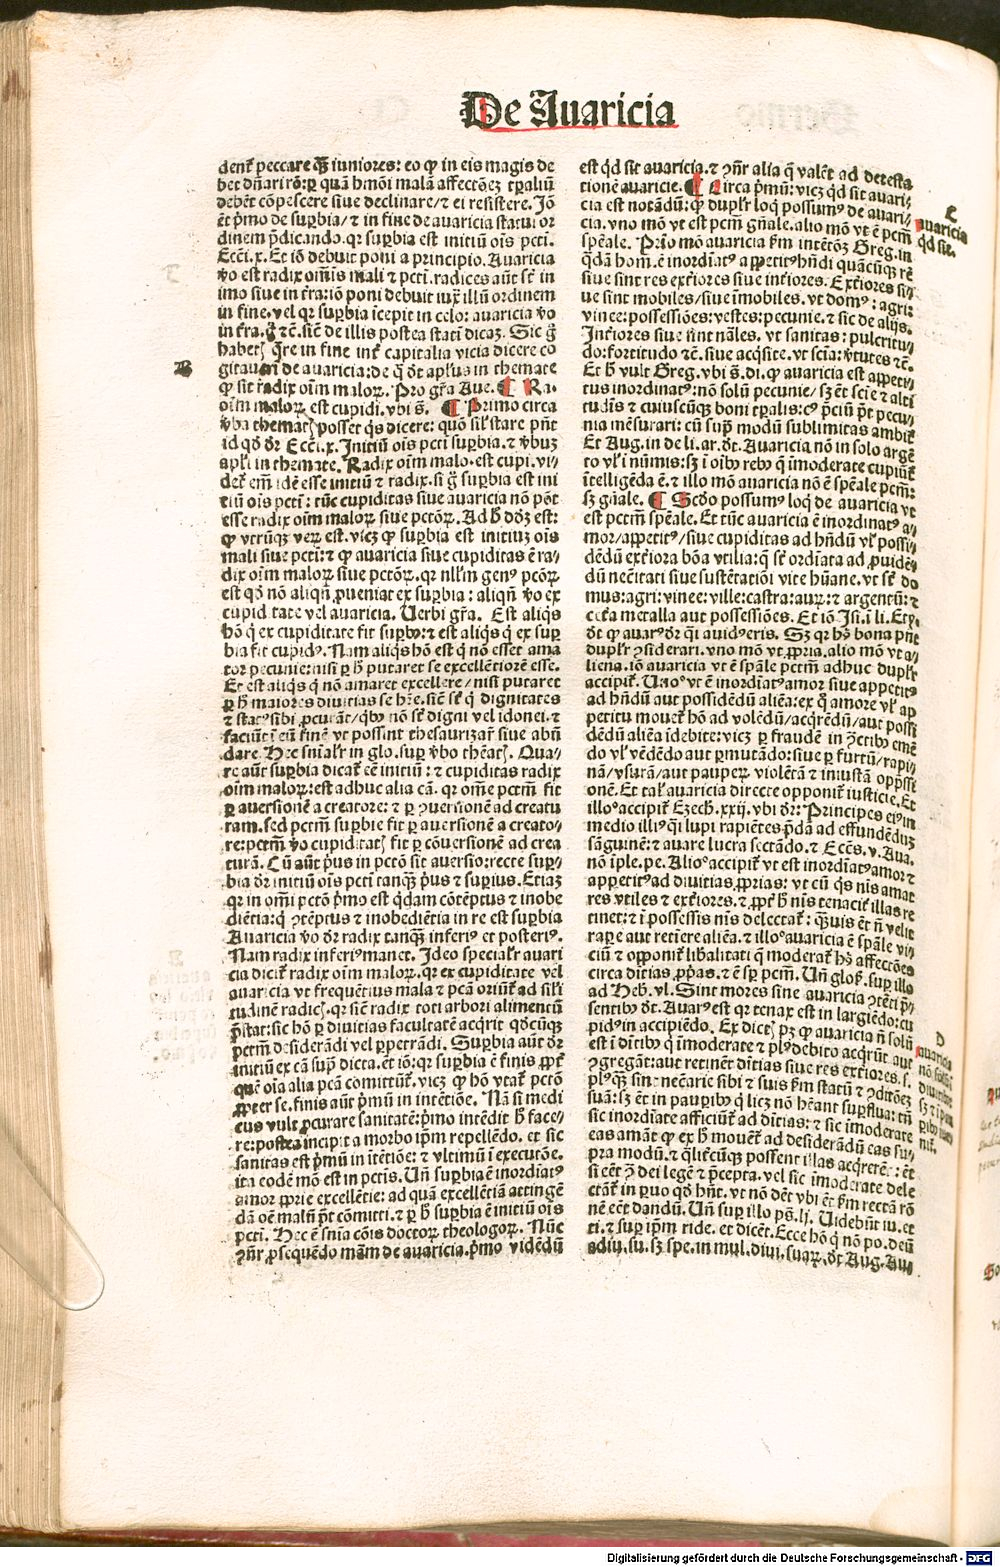 De Auaricia
dent̃ peccare q̃ȝ iuniores: eo ꝙ in eis magis de
bet dñari rõ: ꝑ quã hm̃oi malã affectõeȝ tꝑaliũ
debẽt cõpescere siue declinare/ ⁊ ei resistere. Jõ
et p̃mo de suꝑbia/ ⁊ in fine de auaricia statui or
dinem p̃dicando. qꝛ suꝑbia est initiũ oĩs pcti.
Ecci. x. Et iõ debuit poni a principio. Auaricia
ṽo est radix oĩm̃s mali ⁊ pcti. radices aũt st̃ in
imo siue in t̃ra: iõ poni debuit iux̃ illũ ordinem
in fine. vel qꝛ suꝑbia icepit in celo: auaricia ṽo
in t̃ra. g̃ ⁊c̃. sic̃ de illis postea statĩ dicaȝ. Sic g̃
habetꝭ q̃re in fine int̃ capitalia vicia dicere co
B
gitaui de auaricia: de q̃ d̃t apl̃us in themate
ꝙ sit radix oĩm maloꝝ. Pro gr̃a Aue. ¶ Ra.
oĩm maloꝝ est cupidi. vbi s̃. ¶ Primo circa
ṽba thematꝭ posset q̃s dicere: quõ sil̃ stare pñt
id qd̃ dr̃ Ecci. x. Jnitiũ oĩs pcti suꝑbia. ⁊ ṽbuȝ
apl̃i in themate. Radix oĩm malo. est cupi. vi/
det̃ em̃ idẽ esse initiũ ⁊ radix. si g̃ suꝑbia est ini
tiũ oĩs pcti: tũc cupiditas siue auaricia nõ põt
esse radix oĩm maloꝝ siue pctõꝝ. Ad h̃ dõȝ est:
ꝙ vtrũqȝ veꝝ est. vicȝ ꝙ suꝑbia est initiuȝ oĩs
mali siue pcti: ⁊ ꝙ auaricia siue cupiditas ẽ ra/
dix oĩm maloꝝ siue pctõꝝ. qꝛ nll̃m genꝰ pcõꝝ
est qd̃ nõ aliqñ ꝓueniat ex suꝑbia: aliqñ ṽo ex
cupiditate vel auaricia. Uerbi gr̃a. Est aliq̃s
hõ q̃ ex cupiditate fit suꝑbꝰ: ⁊ est aliq̃s q̃ ex suꝑ
bia fit cupidꝰ. Nam aliq̃s hõ est q̃ nõ esset ama
tor pecunie: nisi ꝑ h̃ putaret se excellẽtiorẽ esse.
Et est aliq̃s q̃ nõ amaret excellere/ nisi putaret
ꝑ h̃ maiores diuitias se hr̃e. sic̃ st̃ q̃ dignitates
⁊ statꝰ sibi ꝓcurãt/ qbꝰ nõ st̃ digni vel idonei. ⁊
faciũt ĩ eũ finẽ vt possint thesaurizar̃ siue abũ
dare. Hec snĩal̃r in glo. suꝑ ṽbo thẽatꝭ. Qua/
re aũt suꝑbia dicat̃ eẽ initiũ: ⁊ cupiditas radix
oĩm maloꝝ: est adhuc alia cã. qꝛ om̃e pctm̃ fit
ꝑ auersionẽ a creatore: ⁊ ꝑ ꝯuersionẽ ad creatu
ram. sed pctm̃ suꝑbie fit ꝑ auersionẽ a creato/
re: pctm̃ ṽo cupiditatꝭ fit ꝑ cõuersionẽ ad crea
turã. Cũ aũt p̃us in pctõ sit auersio: recte suꝑ/
bia dr̃ initiũ oĩs pcti tanqȝ p̃us ⁊ suꝑius. Etiaȝ
qꝛ in om̃i pctõ p̃mo est q̃dam cõtẽptus ⁊ inobe
diẽtia: q̃ ꝯtẽptus ⁊ inobediẽtia in re est suꝑbia
Auaricia ṽo dr̃ radix tanqȝ inferiꝰ et posteriꝰ.
Nam radix inferiꝰ manet. Jdeo special̃r auari
cia dicit̃ radix oĩm maloꝝ. qꝛ ex cupiditate vel
auaricia vt frequẽtius mala ⁊ pcã oriũt̃ ad sil̃i
tudinẽ radicꝭ. qꝛ sic̃ radix toti arbori alimentũ
p̃stat: sic hõ ꝑ diuitias facultatẽ acq̃rit qd̃cũqȝ
pctm̃ desiderãdi vel ꝑpetrãdi. Suꝑbia aũt dr̃
initiũ ex cã supͣ dicta. et iõ: qꝛ suꝑbia ẽ finis ꝓpt̃
quẽ oĩa alia pcã comittũt̃. vicȝ ꝙ hõ vtat̃ pctõ
ꝓpter se. finis aũt p̃mũ in intẽtiõe. Nã si medi
cus vult ꝓcurare sanitatẽ: p̃mo intẽdit h̃ face/
re: postea incipit a morbo ip̃m repellẽdo. et sic
sanitas est p̃mũ in itẽtiõe: ⁊ vltimũ ĩ executõe.
ita eodẽ mõ est in pctĩs. Uñ suꝑbia ẽ inordiatꝰ
amor ꝓprie excellẽtie: ad quã excellẽtiã attingẽ
dã oẽ malũ p̃t cõmitti. ⁊ ꝑ h̃ suꝑbia ẽ initiũ oĩs
pcti. Hec ẽ snĩa cõis doctoꝝ theologoꝝ. Nũc
ꝯñr ꝓsequẽdo mãm de auaricia. p̃mo vidẽdũ
est qd̃ sit auaricia. ⁊ ꝯñr alia q̃ valẽt ad detesta
tionẽ auaricie. ¶ Circa p̃mũ: vicȝ qd̃ sit auari/
C
auaricia
qd̃ sit.
cia est notãdũ: ꝙ dupl̃r loq̃ possumꝰ de auari/
cia. vno mõ vt est pctm̃ gñale. alio mõ vt ẽ pctm̃
spẽale. Prĩo mõ auaricia ẽm intẽtõȝ Greg. in
q̃dã hom̃. ẽ inordĩatꝰ appetitꝰ hñdi quãcũqȝ rẽ
siue sint res exteriores siue inteiores. Exteriores si/
ue sint mobiles/ siue ĩmobiles. vt domꝰ: agri:
vinee: possessiões: vestes: pecunie. ⁊ sic de alijs.
Jnteriores siue sint nãles. vt sanitas: pulcritu/
do: fortitudo ⁊c̃. siue acq̃site. vt scĩa: ṽtutes ⁊c̃.
Et h̃ vult Greg. vbi s̃. di. ꝙ auaricia est appeti/
tus inordinatꝰ: nõ solũ pecunie/ sȝ et scĩe ⁊ alti
tudĩs ⁊ cuiuscũqȝ boni tꝑalis: cꝰ p̃ciũ p̃t pecu/
nia mẽsurari: cũ supͣ modũ sublimitas ambit̃
Et Aug. in de li. ar. d̃t. Auaricia nõ in solo argẽ
to vl̃ ĩ nũmis: sȝ ĩ oĩbꝰ rebꝰ q̃ ĩmoderate cupiũt̃
ĩtelligẽda ẽ. ⁊ illo mõ auaricia nõ ẽ spẽale pctm̃:
sȝ gñale. ¶ Scd̃o possumꝰ loq̃ de auaricia vt
est pctm̃ spẽale. Et tũc auaricia ẽ inordinatꝰ a/
mor/ appetitꝰ/ siue cupiditas ad hñdũ vl̃ possi/
dẽdũ exteriora bõa vtilia: q̃ st̃ ordĩata ad ꝓuidẽ/
dũ necc̃itati siue sustẽtatiõi vite hũane. vt st̃ do
mus: agri: vinee: ville: castra: auꝝ: ⁊ argentũ: ⁊
cet̃a metalla aut possessiões. Et iõ Jsi. ĩ li. Ety.
d̃t ꝙ auarꝰ dr̃ q̃si auidꝰ eris. Sȝ qꝛ hꝰ bona pñt
dupl̃r ꝯsiderari. vno mõ vt ꝓpria. alio mõ vt a/
liena. iõ auaricia vt ẽ spãle pctm̃ adhuc dupl̃r
accipit̃. Uno° vt ẽ inordĩatꝰ amor siue appetitꝰ
ad hñdũ aut possidẽdũ aliẽa: ex q̃ amore vl̃ ap
petitu mouet̃ hõ ad volẽdũ/ acq̃rẽdũ/ aut possi
dẽdũ aliẽa idebite: vicȝ ꝑ fraudẽ in ꝯctibꝰ emẽ
do vl̃ vẽdẽdo aut ꝑmutãdo: siue ꝑ furtũ/ rapi/
nã/ vsurã/ aut pauperꝝ violẽtã ⁊ iniustã opp̃ssi
onẽ. Et tal̃ auaricia directe opponit̃ iusticie. Et
illo° accipit̃ Ezech. xxij. vbi dr̃: Principes eiꝰ in
medio illiꝰ q̃si lupi rapiẽtes p̃dã ad effundẽduȝ
sãguinẽ: ⁊ auare lucra sectãdo. ⁊ Eccs̃. v. Aua.
nõ iple. pe. Alio° accipit̃ vt est inordĩatꝰ amor ⁊
appetitꝰ ad diuitias ꝓprias: vt cũ q̃s nis̃ amat
res vtiles ⁊ exteriores. ⁊ ꝓpt̃ h̃ nis̃ tenacit̃ illas re
tinet: ⁊ ĩ possessis nis̃ delectat̃: q̃uis ẽt ñ velit
rapere aut retĩere aliẽa. ⁊ illo° auaricia ẽ spãle vi/
ciũ ⁊ opponit̃ libalitati q̃ moderat̃ hꝰ affectões
circa dĩtias ꝓpͥas. ⁊ ẽ sp̃ pctm̃. Uñ glo. suꝑ illo
ad Heb. vl. Sint mores sine auaricia ꝯtẽti p̃/
sentibꝰ d̃t. Auarꝰ est qꝛ tenax est in largiẽdo: cu
pidꝰ in accipiẽdo. Ex dictꝭ pȝ ꝙ auaricia ñ solũ
D
auaricia
nõ solũ ẽ
diuitibꝰ
sȝ ⁊ ĩ pau
ꝑibꝰ inue
nit̃.
est ĩ dĩtibꝰ q̃ ĩmoderate ⁊ plꝰ debito acq̃rũt aut
ꝯgregãt: aut retinẽt dĩtias siue res exteriores. s.
plꝰqȝ sit necc̃arie sibi ⁊ suis ẽm statũ ⁊ ꝯditõeȝ
suã: sȝ ẽt in pauꝑibꝰ q̃ licȝ nõ hẽant suꝑflua: tñ
sic inordĩate afficiũt̃ ad dĩtias: ⁊ sic imoderate
eas amãt ꝙ ex h̃ mouẽt̃ ad desiderãdũ eas su/
pra modũ. ⁊ qlitcũqȝ possent illas acq̃rerẽt: ẽt
si eẽt ꝯ̃ dei legẽ ⁊ p̃cepta. vel sic imoderate dele
ctãt̃ in ꝑuo qd̃ hñt. vt nõ dẽt vbi ẽt ẽm rectã rõ
nẽ eẽt dandũ. Uñ suꝑ illo pꝰs. lj. Uidebũt iu. et
ti. ⁊ suꝑ ip̃m ride. et dicẽt. Ecce hõ q̃ nõ po. deũ
adiu. su. sȝ spe. in mul. diui. suaꝝ. d̃t Aug. Aua
Digitalisierung gefördert durch die Deutsche Forschungsgemeinschaft - DFG